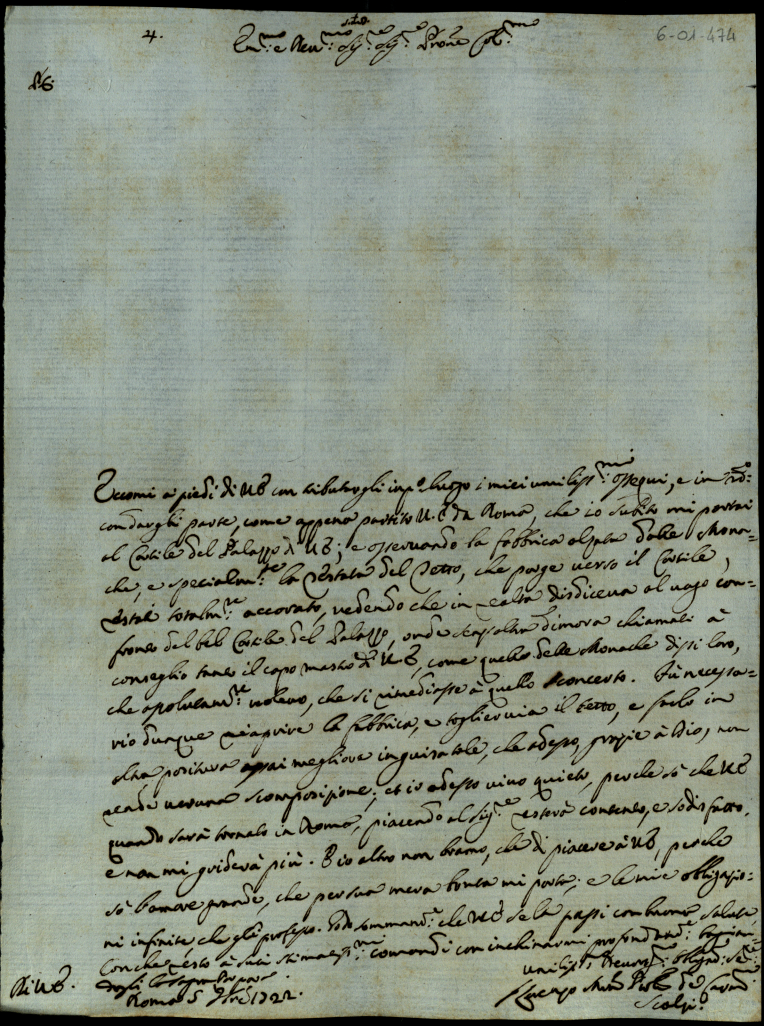 4.
6-01-474
Em.mo e Rev.mo Sig.re Sig.re Prōne Col.mo
Eccomi a piedi di VE con tributargli in p.o luogo i miei umiliss.mi ossequi, e in
con dargli parte, come appena partito VE da Roma, che io subito mi portai
al Cortile del Palazzo di VE; e osservando la fabbrica alzata dalle Mona=
che, e specialm.te la Testata del Tetto, che porge verso il Cortile,
restai totalm.te accorato, vedendo che in realtà disdiceva al vago con=
fronto del bel Cortile del Palazzo, onde senz'altra dimora chiamati à
conseglio tanto il capo mastro di VE, come quello delle Monache dissi loro,
che asolutam.te volevo, che si rimediasse à quello sconcerto. Fù necessa=
rio dunque riaprire la fabbrica, e toglier via il tetto, e farlo in
altra positura assai megliore in guisa tale, che adesso, grazie à Dio, non
rende veruna scomposizione; et io adesso vivo quieto, perche sò che VE
quando sarà tornato in Roma, piacendo al Sig.re resterà contento, e sodisfatto,
e non mi griderà più. Et io altro non bramo, che di piacere à VE, perche
sò l'amore grande, che per sua mera bontà mi porta; e le mie obligazio=
ni infinite che gli professo. Godo sommam.te che VE se la passi con buona salute,
Con che resto à suoi stimatiss.mi comandi con inchinarmi profondam.te
Di VE.
Roma 5 7bre 1722.
Umiliss.mo Devotiss.mo Obligat.mo Se.re
Lorenzo